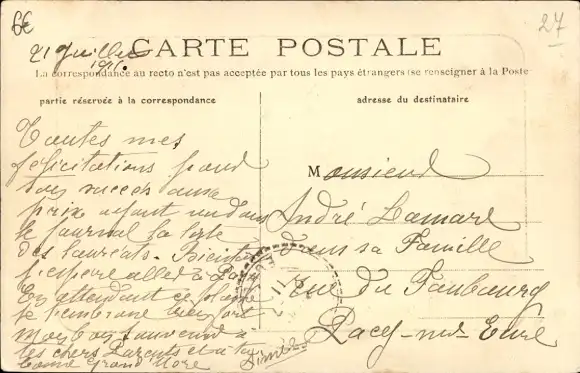 27
21 Juillet
1916.
CARTE POSTALE
La correspondance au recto n'est pas acceptée par tous les pays étrangers (se renseigner à la Poste
partie réservée à la correspondance
adresse du destinataire
Toutes mes
félicitations pour
ton succès aux
prix ayant vu dans
le journal la liste
des lauréats. Bientôt
j'espère aller à
En attendant ce
je t'embrasse bien fort
Mon bon souvenir à
tes chers Parents et à ta
bonne Grand Mère
Monsieur
André Lamare
dans sa Famille
rue du Faubourg
Pacy-sur Eure